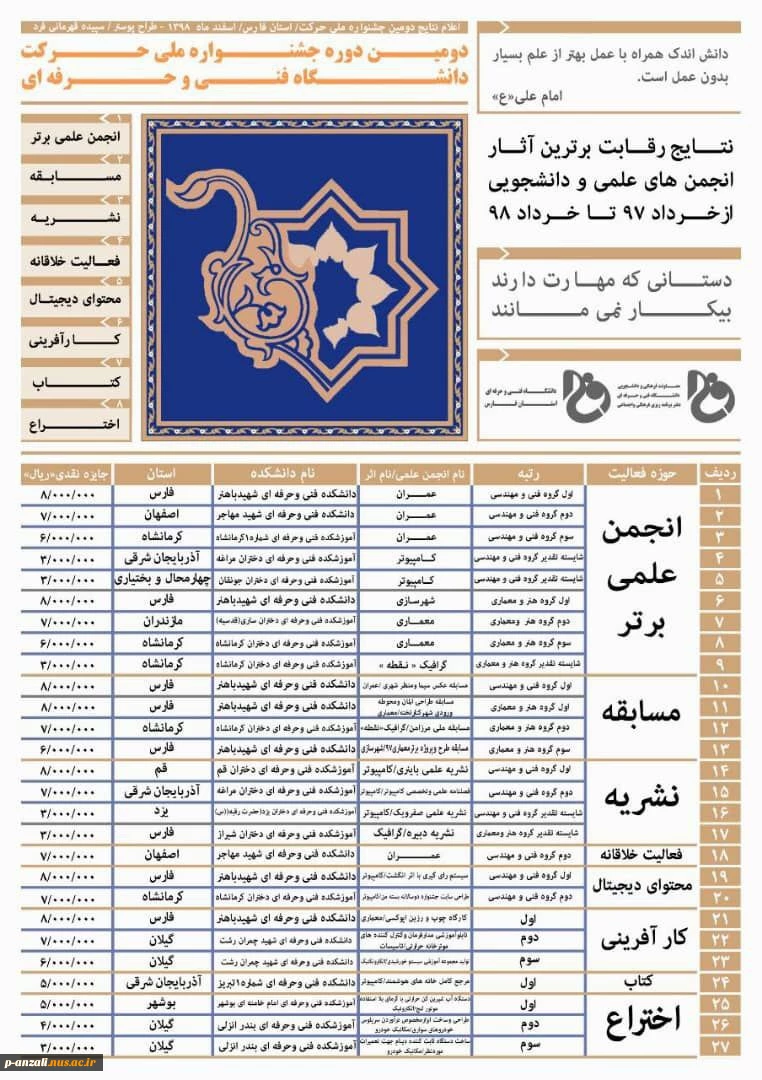 اعلام نتایج دومین جشنواره ملی حرکت/ استان فارس/ اسفند ماه ۱۳۹۸ - طراح پوستر / سپیده قهرمانی فرد
دومیـــن دوره جشنـــــواره ملی حـــرکت
دانشـــگاه فنـــی و حـــرفه ای
دانش اندک همراه با عمل بهتر از علم بسیار
بدون عمل است.
امام علی«ع»
نتـــایج رقـــابت برترین آثـــار
انجمن های علمی و دانشجویی
از خـرداد ۹۷ تـــا خـــرداد ۹۸
دستـــانی که مهـــارت دارند
بیکـــــار نمی مـــــانند
معاونت فرهنگی و دانشجویی
دانشگاه فنی و حرفه ای
دفتر برنامه ریزی فرهنگی واجتماعی
دانشگاه فنی و حرفه ای
استـــان فـــارس
۱
انجمن علمی برتر
۲
مســـابقه
۳
نشـــریه
۴
فعـالیت خلاقانه
۵
محتوای دیجیتال
۶
کـــارآفرینی
۷
کتـــاب
۸
اختـــراع
ردیف حوزه فعالیت رتبه نام انجمن علمی/نام اثر نام دانشکده استان جایزه نقدی«ریال»
انجمن علمی برتر
۱ اول گروه فنی و مهندسی عمـــران دانشکده فنی وحرفه ای شهیدباهنر فارس ۸/۰۰۰/۰۰۰
۲ دوم گروه فنی و مهندسی عمـــران آموزشکده فنی وحرفه ای شهید مهاجر اصفهان ۷/۰۰۰/۰۰۰
۳ سوم گروه فنی و مهندسی عمـــران آموزشکده فنی وحرفه ای شماره۱کرمانشاه کرمانشاه ۶/۰۰۰/۰۰۰
۴ شایسته تقدیر گروه فنی و مهندسی کـــامپیوتر آموزشکده فنی وحرفه ای دختران مراغه آذربایجان شرقی ۳/۰۰۰/۰۰۰
۵ شایسته تقدیر گروه فنی و مهندسی کـــامپیوتر آموزشکده فنی وحرفه ای دختران جونقان چهارمحال و بختیاری ۳/۰۰۰/۰۰۰
۶ اول گروه هنر و معماری شهرسازی دانشکده فنی وحرفه ای شهیدباهنر فارس ۸/۰۰۰/۰۰۰
۷ دوم گروه هنر و معماری معمـــاری آموزشکده فنی وحرفه ای دختران ساری(قدسیه) مازندران ۷/۰۰۰/۰۰۰
۸ سوم گروه هنر و معماری معمـــاری آموزشکده فنی وحرفه ای دختران کرمانشاه کرمانشاه ۶/۰۰۰/۰۰۰
۹ شایسته تقدیر گروه هنر و معماری گرافیک « نـقطه » آموزشکده فنی وحرفه ای دختران کرمانشاه کرمانشاه ۳/۰۰۰/۰۰۰
مسابقه
۱۰ اول گروه فنی و مهندسی مسابقه عکس سیما ومنظر شهری /عمران دانشکده فنی وحرفه ای شهیدباهنر فارس ۸/۰۰۰/۰۰۰
۱۱ اول گروه هنر و معماری مسابقه طراحی المان ومحوطه ورودی شهرکتارتخته/معماری دانشکده فنی وحرفه ای شهیدباهنر فارس ۸/۰۰۰/۰۰۰
۱۲ دوم گروه هنر و معماری مسابقه ملی مرزامن/گرافیک«نقطه» آموزشکده فنی وحرفه ای دختران کرمانشاه کرمانشاه ۷/۰۰۰/۰۰۰
۱۳ سوم گروه هنر و معماری مسابقه طرح وپروژه برترمعماری۹۷/شهرسازی دانشکده فنی وحرفه ای شهیدباهنر فارس ۶/۰۰۰/۰۰۰
نشریه
۱۴ اول گروه فنی و مهندسی نشریه علمی باینری/کامپیوتر آموزشکده فنی وحرفه ای دختران قم قم ۸/۰۰۰/۰۰۰
۱۵ دوم گروه فنی و مهندسی فصلنامه علمی وتخصصی کامپیوتر/کامپیوتر آموزشکده فنی وحرفه ای دختران مراغه آذربایجان شرقی ۷/۰۰۰/۰۰۰
۱۶ شایسته تقدیر گروه فنی و مهندسی نشریه علمی صفرویک/کامپیوتر آموزشکده فنی وحرفه ای دختران یزد(حضرت رقیه(س) یزد ۳/۰۰۰/۰۰۰
۱۷ شایسته تقدیر گروه هنر ومعماری نشریه دبیره/گرافیک آموزشکده فنی وحرفه ای دختران شیراز فارس ۳/۰۰۰/۰۰۰
فعالیت خلاقانه
۱۸ دوم گروه فنی و مهندسی عمـــران آموزشکده فنی وحرفه ای شهید مهاجر اصفهان ۷/۰۰۰/۰۰۰
محتوای دیجیتال
۱۹ اول گروه فنی و مهندسی سیستم رای گیری با اثر انگشت/کامپیوتر دانشکده فنی وحرفه ای شهیدباهنر فارس ۸/۰۰۰/۰۰۰
۲۰ دوم گروه فنی و مهندسی طراحی سایت جشنواره دوسالانه بسته مرا/کامپیوتر آموزشکده فنی وحرفه ای دختران کرمانشاه کرمانشاه ۷/۰۰۰/۰۰۰
کار آفرینی
۲۱ اول کارگاه چوب و رزین اپوکسی/معماری دانشکده فنی وحرفه ای شهیدباهنر فارس ۸/۰۰۰/۰۰۰
۲۲ دوم تابلوآموزشی مدارفرمان وکنترل کننده های موتورخانه حرارتی/تاسیسات آموزشکده فنی وحرفه ای شهید چمران رشت گیلان ۷/۰۰۰/۰۰۰
۲۳ سوم تولید مجموعه آموزشی سیستم خورشیدی/الکتروتکنیک آموزشکده فنی وحرفه ای شهید چمران رشت گیلان ۶/۰۰۰/۰۰۰
کتاب
۲۴ اول مرجع کامل خانه های هوشمند/کامپیوتر آموزشکده فنی وحرفه ای شماره۱تبریز آذربایجان شرقی ۵/۰۰۰/۰۰۰
اختراع
۲۵ اول دستگاه آب شیرین کن حرارتی با گرمای بلا استفاده موتور لنج/الکترونیک آموزشکده فنی وحرفه ای امام خامنه ای بوشهر بوشهر ۵/۰۰۰/۰۰۰
۲۶ دوم طراحی وساخت ابزارمخصوص درآوردن سرپلوس خودروهای سواری/مکانیک خودرو آموزشکده فنی وحرفه ای بندر انزلی گیلان ۴/۰۰۰/۰۰۰
۲۷ سوم ساخت دستگاه ثابت کننده دینام جهت تعمیرات موردنظر/مکانیک خودرو آموزشکده فنی وحرفه ای بندر انزلی گیلان ۳/۰۰۰/۰۰۰
p-anzali.nus.ac.ir